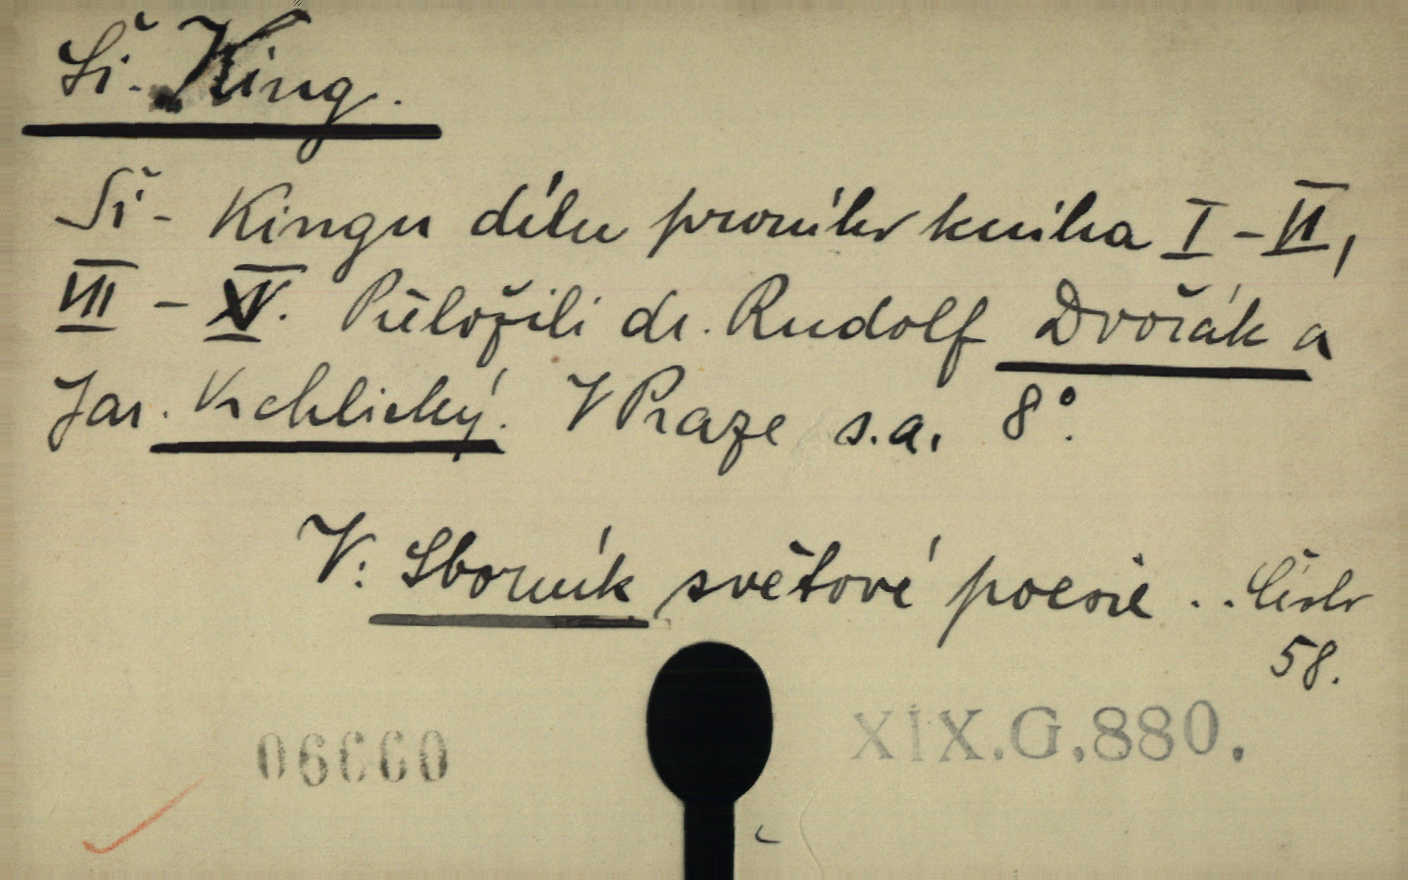 Ši-King.
Ši-Kingu dílu prvního kniha I-VI,
VII - XV. Přeložili dr. Rudolf Dvořák a
Jar. Vrchlický. V Praze s.a. 8°.
V: Sborník světové poesie .. Číslo
58.
06660
XIX.G.880.